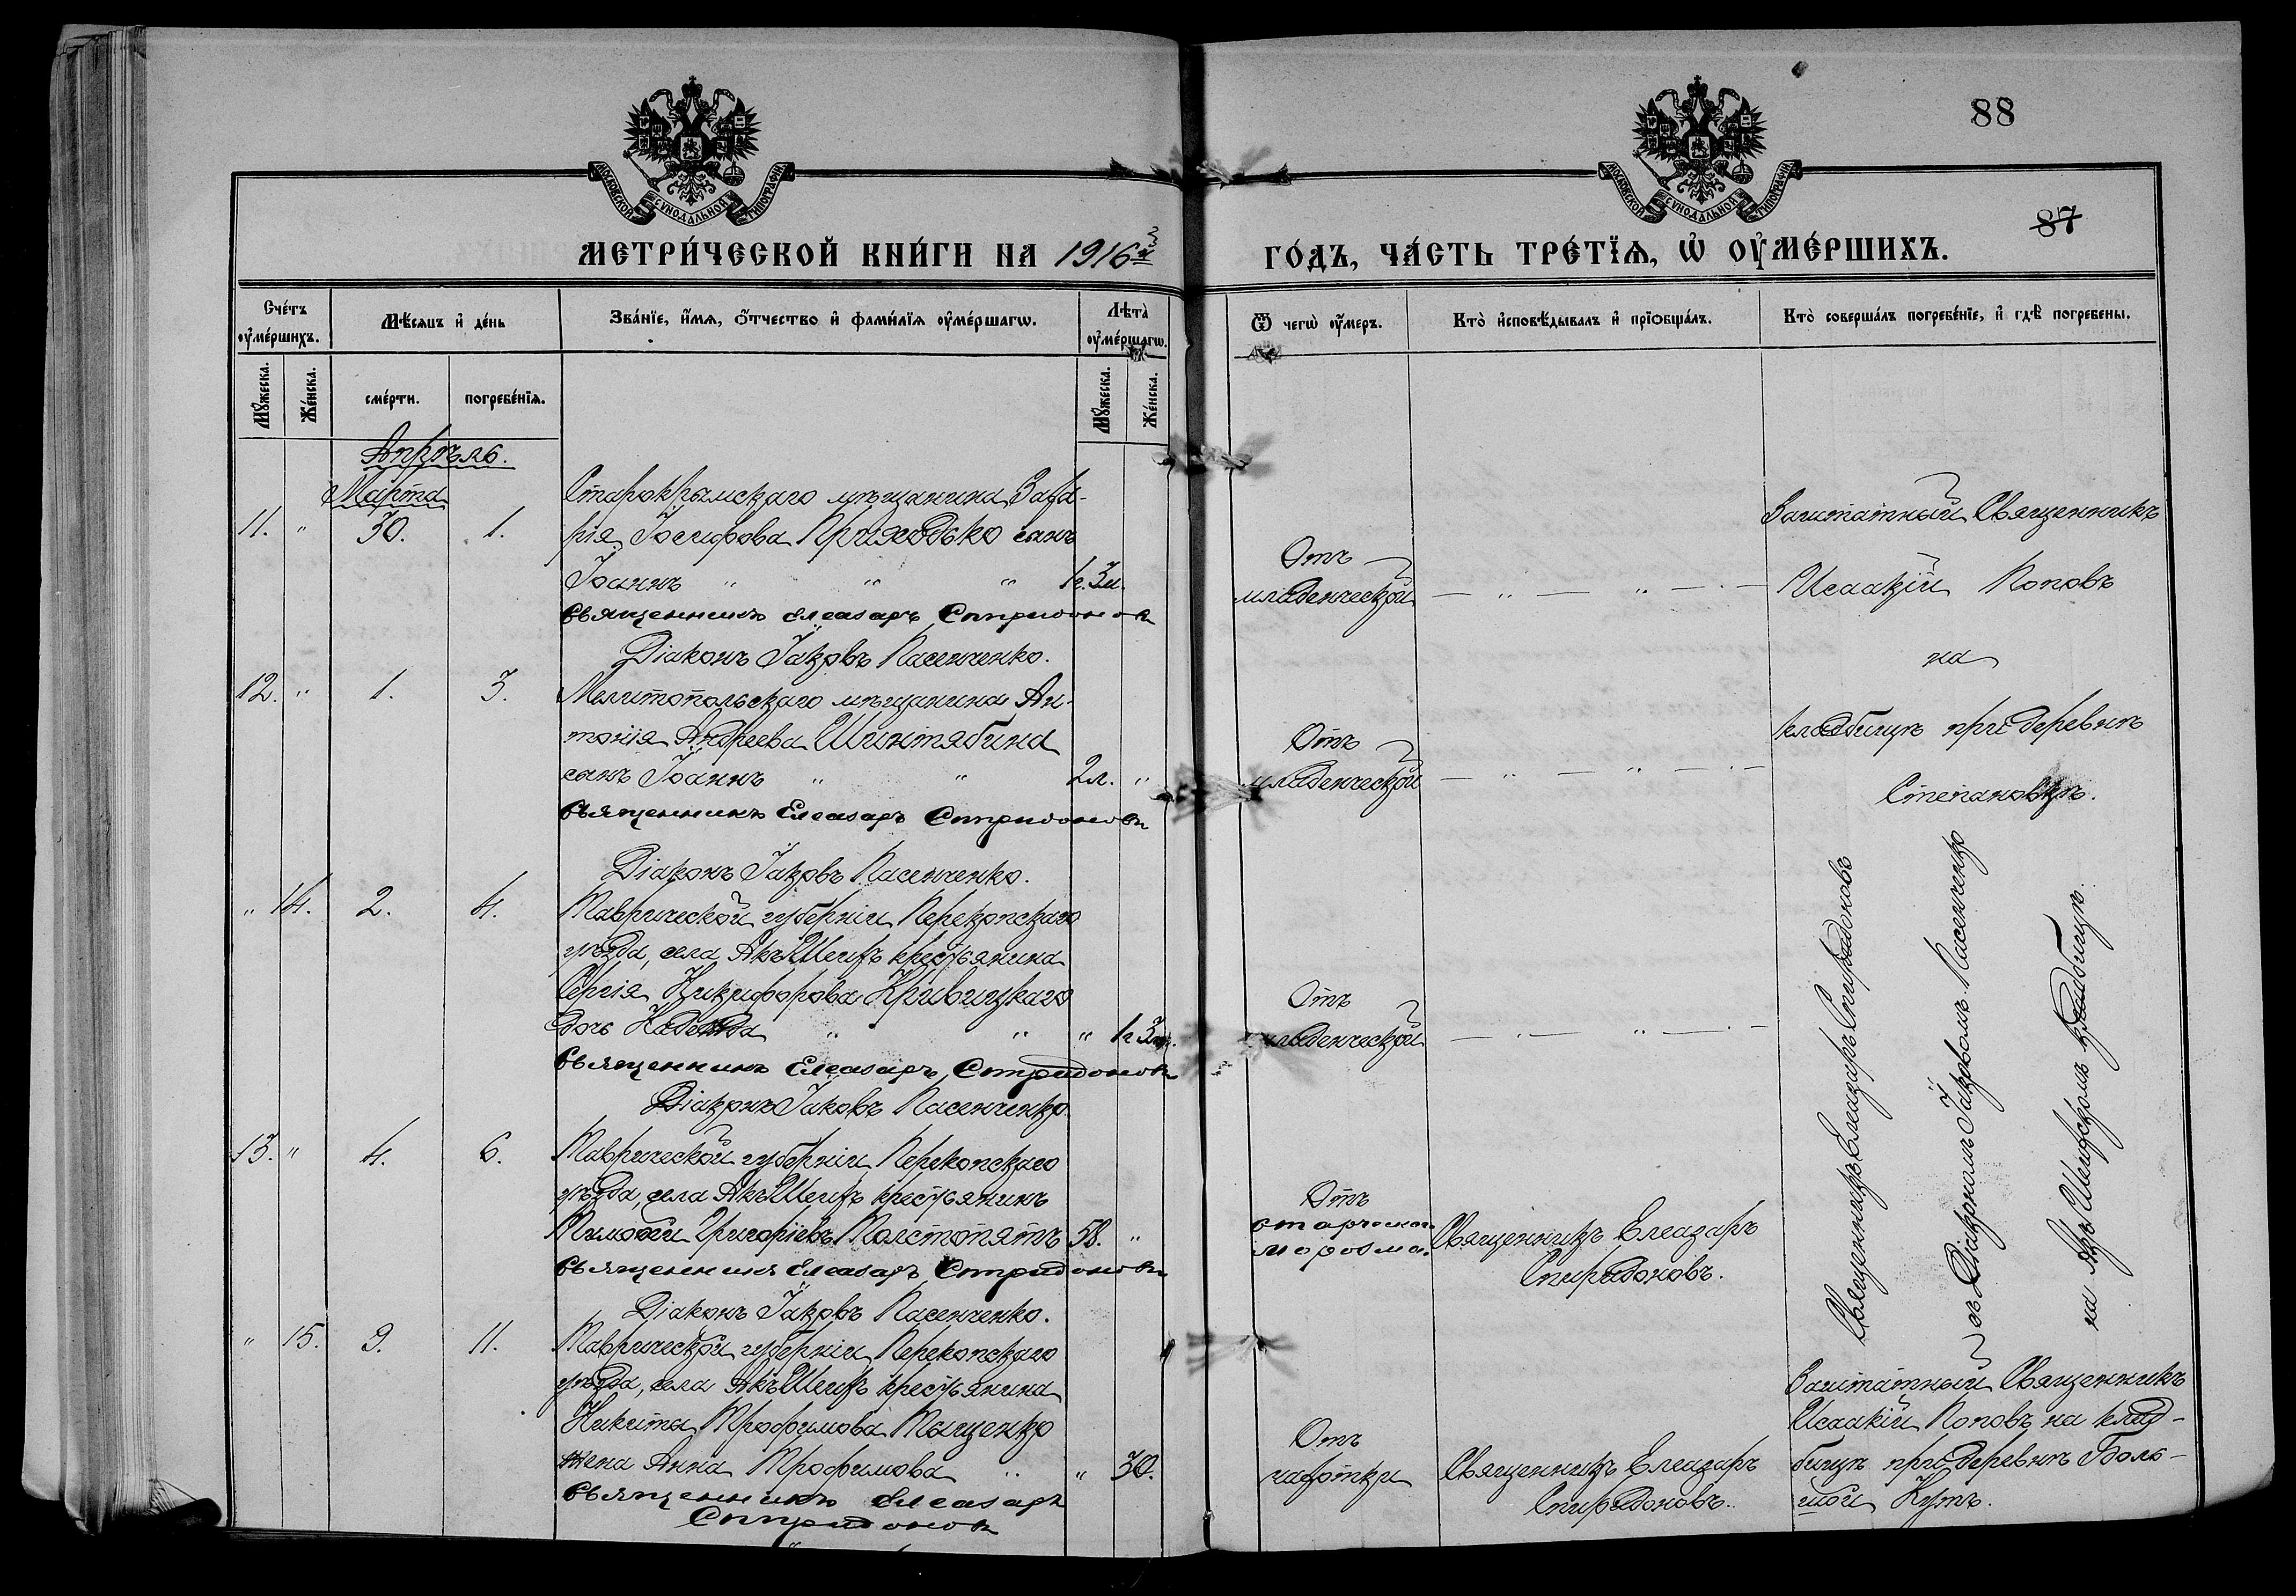 88
МОСКОВСКОЙ СѴНОДАЛЬНОЙ ТИПОГРАФІИ
МОСКОВСКОЙ СѴНОДАЛЬНОЙ ТИПОГРАФІИ
87
МЕТРИ́ЧЕСКОЙ КНИ́ГИ НА 1916й
ГО́ДЪ, ЧА́СТЬ ТРЕ́ТЇѦ, Ѡ҆ ОУ҆МЕ́РШИХЪ.
Сче́тъ оу҆ме́ршихъ.
Мѣ́сяцъ и҆ де́нь
Зва́нїе, и҆́мѧ, ѻ҆́тчество и҆ фами́лїѧ оу҆ме́ршагѡ.
Лѣта̀ оу҆ме́ршагѡ.
Ѿ чегѡ̀ оу҆́меръ.
Кто̀ и҆сповѣ́дывалъ и҆ прїѡбща́лъ.
Кто̀ соверша́лъ погребе́нїе, и҆ гдѣ̀ погребены.
Мꙋ́жеска.
Же́нска.
сме́рти.
погребе́нїѧ.
Мꙋ́жеска.
Же́нска.
Апрѣль.
Марта
11. " 30. 1.
Старокрымскаго мѣщанина Заха-
рія Іосифова Приходько сынъ
Іоаннъ " " " 1г.3м.
Священникъ Елеазаръ Спиридоновъ
Діаконъ Іаковъ Пасенченко.
Отъ
младенческой
— " — " — . —
Заштатный Священникъ
Исаакій Поповъ
на
кладбищѣ при деревнѣ
Степановкѣ.
12. " 1. 3.
Мелитопольскаго мѣщанина Ан-
тонія Андреева
сынъ Іоаннъ " " 2л. "
Священникъ Елеазаръ Спиридоновъ
Діаконъ Іаковъ Пасенченко.
Отъ
младенческой
— " — " — . —
" 14. 2. 4.
Таврической губерніи Перекопскаго
уѣзда, села Акъ Шеихъ крестьянина
Сергія Никифорова Кривицкаго
дочь Надежда " " " 1г 3м.
Священникъ Елеазаръ Спиридоновъ
Діаконъ Іаковъ Пасенченко
Отъ
младенческой
— " — " — . —
Священникъ Елеазаръ Спиридоновъ
съ Діакономъ Іаковомъ Пасенченко
на Акъ Шеихскомъ кладбищѣ.
13. " 4. 6.
Таврической губерніи Перекопскаго
уѣзда, села Акъ Шеихъ крестьянинъ
Тимофей Григоріевъ Толстопятъ 58. "
Священникъ Елеазаръ Спиридоновъ
Діаконъ Іаковъ Пасенченко.
Отъ
Священникъ Елеазаръ
Спиридоновъ.
" 15. 9. 11.
Таврической губерніи Перекопскаго
уѣзда, села Акъ Шеихъ крестьянина
Никиты Трофимова Тащенко
жена Анна Трофимова " " 30.
Священникъ Елеазаръ
Спиридоновъ
Отъ
чахотки
Священникъ Елеазаръ
Спиридоновъ.
Заштатный Священникъ
Исаакій Поповъ на клад-
бищѣ при деревнѣ Боль-
шой Кутъ.